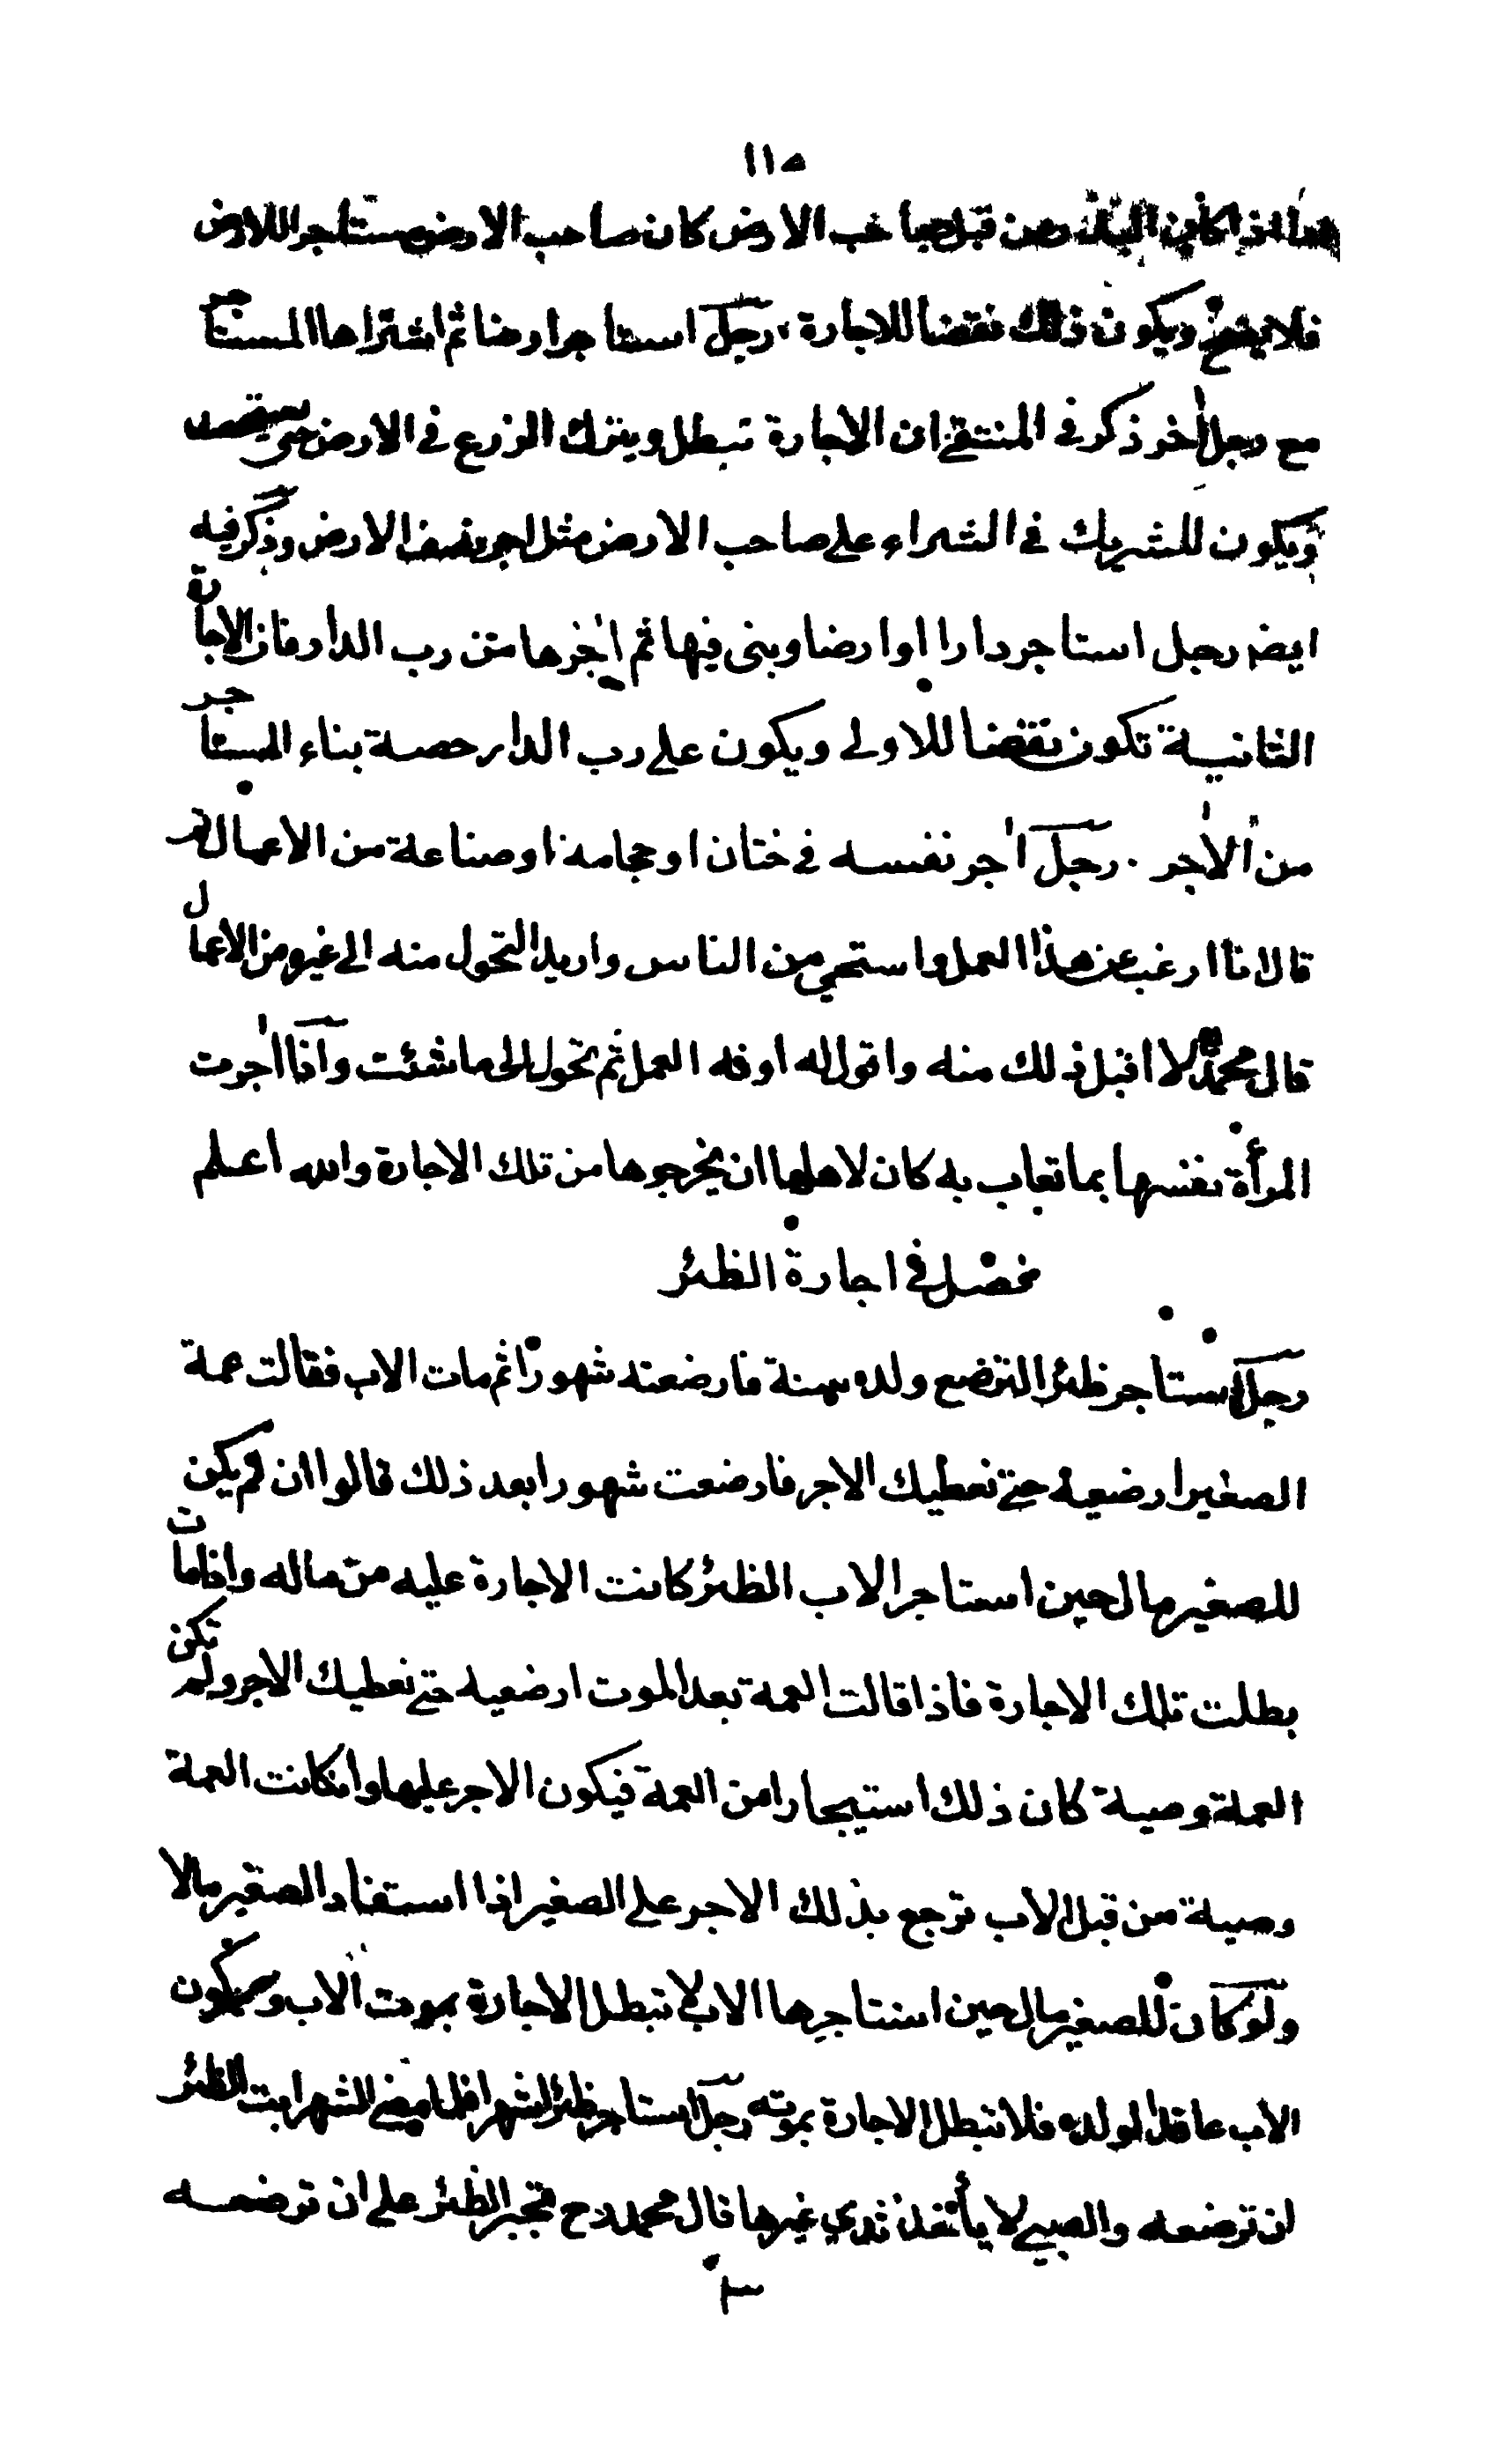 ١١٥
اذا كان البذر من قبل صاحب الارض كان صاحب الارض مستاجرا للارض
فلا يصح ويكون ذلك نقضا للاجارة، رجل استاجر ارضا ثم اشتراها المستاجر
مع رجل اٰخر ذكر في المنتقى ان الاجارة تبطل ويترك الزرع في الارض حتى يستحصد
ويكون للشريك في الشراء على صاحب الارض مثل اجر نصف الارض وذكر فيه
ايضا رجل استاجر دارا او ارضا وبنى فيها ثم اٰجرها من رب الدار فان الاجارة
الثانية تكون نقضا للاولى ويكون على رب الدار حصة بناء المستاجر
من الاجر. رجل اٰجر نفسه في ختان او حجامة او صناعة من الاعمال ثم
قال انا ارغب عن هذا العمل واستحي من الناس واريد التحول منه الى غيره من الاعمال
قال محمد رح لا اقبل ذلك منه واقول له اوفه العمل ثم تحول الى ما شئت واذا اٰجرت
المرأة نفسها بما تعاب به كان لاهلها ان يخرجوها من تلك الاجارة والله اعلم
فصل في اجارة الظئر
رجل استاجر ظئرا لترضع ولده سنة فارضعته شهورا ثم مات الاب فقالت عمة
الصغير ارضعيه حتى نعطيك الاجر فارضعت شهورا بعد ذلك قالوا ان لم يكن
للصغير مال حين استاجر الاب الظئر كانت الاجارة عليه من ماله واذا مات
بطلت تلك الاجارة فاذا قالت العمة بعد الموت ارضعيه حتى نعطيك الاجر ولم تكن
العمة وصية كان ذلك استيجارا من العمة فيكون الاجر عليها وان كانت العمة
وصية من قبل الاب ترجع بذلك الاجر على الصغير اذا استفاد الصغير مالا
ولو كان للصغير مال حين استاجرها الاب لا تبطل الاجارة بموت الاب ويكون
الاب عاقدا لولده فلا تبطل الاجارة بموته رجل استاجر ظئرا شهرا فلما مضى الشهر ابت الظئر
ان ترضعه والصبي لا يأخذ ثدي غيرها قال محمد رح تجبر الظئر على ان ترضعه